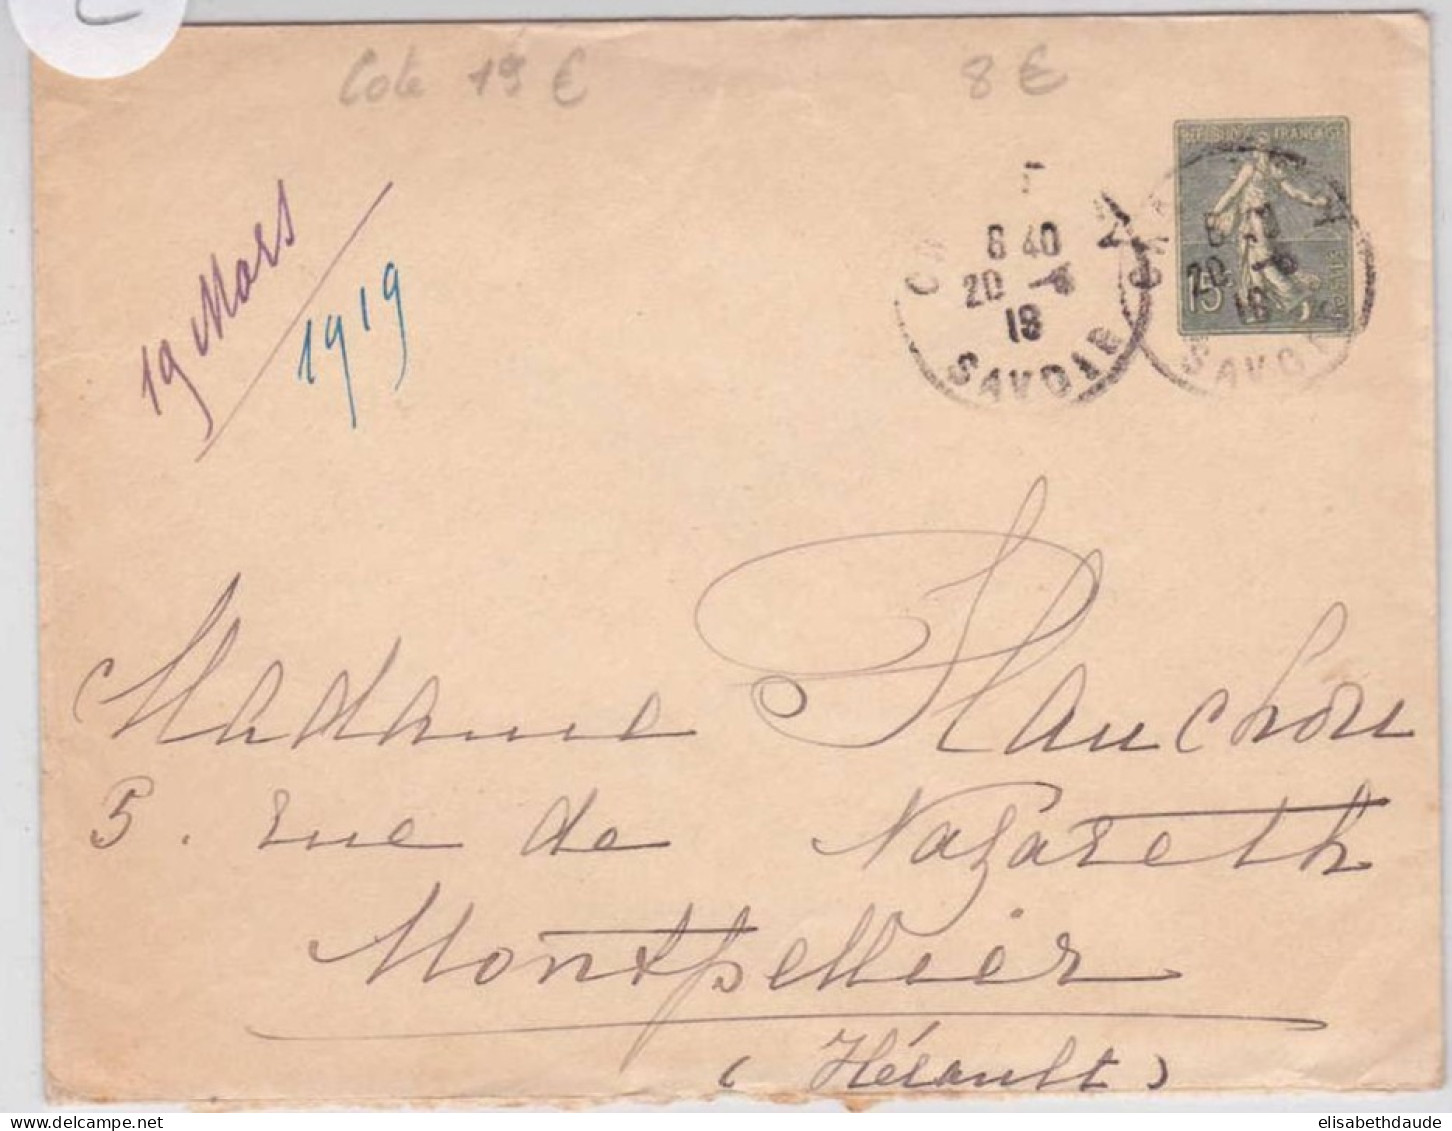 Cote 19 €
8 €
REPUBLIQUE FRANÇAISE
POSTES
15
19 Mars
1919
8 40
20 -6
18
SAVOIE
20 -6
18
SAVOIE
Madame Planchon
5. rue de Nazareth
Montpellier
(Hérault)
elisabethdaude